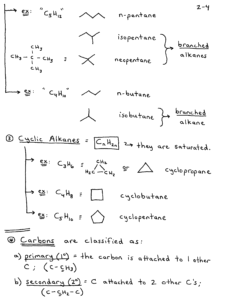 2-4
ex: "C5H12" n-pentane
isopentane
CH3
CH3-C-CH3 = neopentane
CH3
branched alkanes
ex: "C4H10" n-butane
isobutane } branched alkane
③ Cyclic Alkanes = CnH2n → they are saturated.
ex: C3H6 = CH2 H2C-CH2 ≡ cyclopropane
ex: C4H8 = cyclobutane
ex: C5H10 = cyclopentane
Carbons are classified as:
a) primary (1°) = the carbon is attached to 1 other
C ; (C-CH3)
b) secondary (2°) = C attached to 2 other C's;
(C-CH2-C)